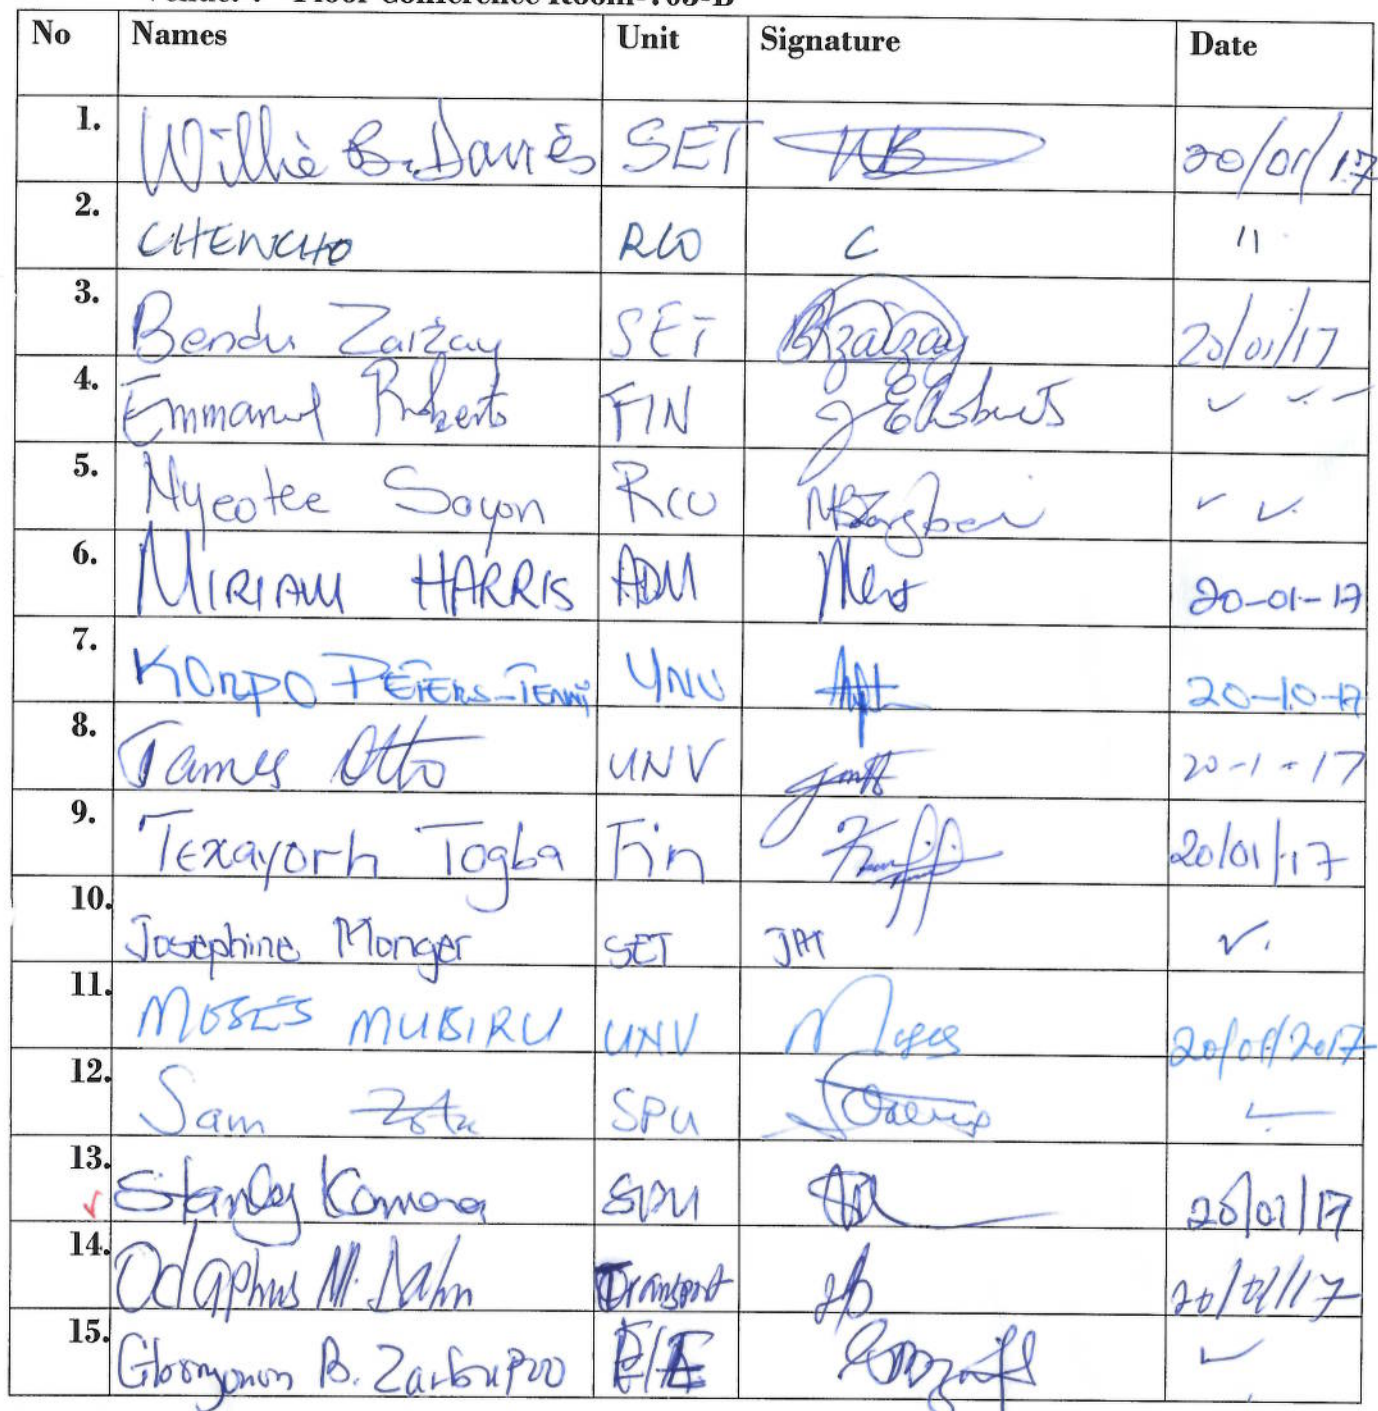 No Names Unit Signature Date
1. Willie B. Davies SET WB 20/01/17
2. CHENCHO RCO C 11
3. Bendu Zarzay SET BZarzay 20/01/17
4. Emmanuel Roberts FIN
5. Nyeotee Sayon RCO
6. MIRIAM HARRIS ADM 20-01-17
7. KORPO PETERS-TENNI UNV 20-10-17
8. James Otto UNV 20-1-17
9. Texayorh Togba Fin 20/01/17
10. Josephine Monger SET JM
11. MOSES MUBIRU UNV Moses 20/01/2017
12. Sam SPU
13. Stanley Kamara SPU 20/01/17
14. Odaphus M. Dahn Transport 20/01/17
15. B.